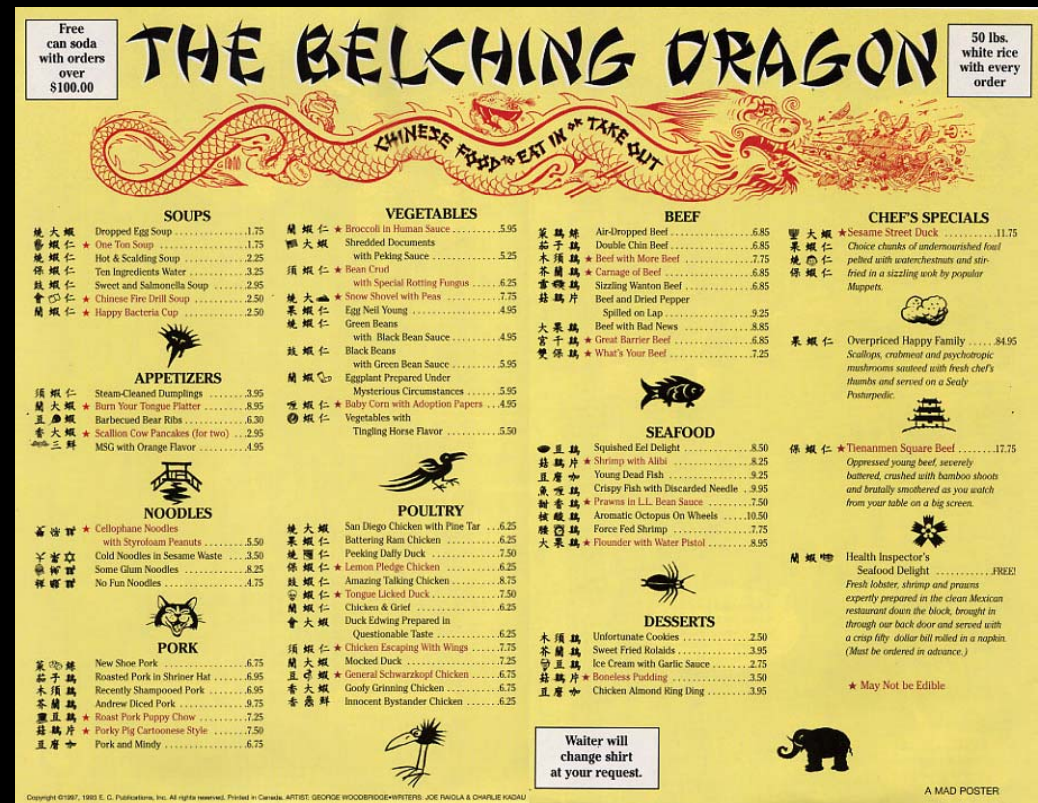 Free
can soda
with orders
over
$100.00
THE BELCHING DRAGON
50 lbs.
white rice
with every
order
CHINESE FOOD to EAT IN or TAKE OUT
SOUPS
大蝦 Dropped Egg Soup 1.75
蝦仁 ★ One Ton Soup 1.75
蝦仁 Hot & Scalding Soup 2.25
保蝦仁 Ten Ingredients Water 3.25
蝦仁 Sweet and Salmonella Soup 2.95
會 仁 ★ Chinese Fire Drill Soup 2.50
蘭蝦仁 ★ Happy Bacteria Cup 2.50
APPETIZERS
須蝦仁 Steam-Cleaned Dumplings 3.95
蘭大蝦 ★ Burn Your Tongue Platter 8.95
豆 蝦 Barbecued Bear Ribs 6.30
香大蝦 ★ Scallion Cow Pancakes (for two) 2.95
三鮮 MSG with Orange Flavor 4.95
NOODLES
★ Cellophane Noodles
with Styrofoam Peanuts 5.50
Cold Noodles in Sesame Waste 3.50
Some Glum Noodles 8.25
No Fun Noodles 4.75
PORK
菜 New Shoe Pork 6.75
茄子鷄 Roasted Pork in Shriner Hat 6.95
木須鷄 Recently Shampooed Pork 6.95
芥蘭鷄 Andrew Diced Pork 9.75
豆鷄 ★ Roast Pork Puppy Chow 7.25
菇鷄片 ★ Porky Pig Cartoonese Style 7.50
豆 Pork and Mindy 6.75
VEGETABLES
蘭蝦仁 ★ Broccoli in Human Sauce 5.95
大蝦 Shredded Documents
with Peking Sauce 5.25
須蝦仁 ★ Bean Crud
with Special Rotting Fungus 6.25
大 ★ Snow Shovel with Peas 7.75
果蝦仁 Egg Neil Young 4.95
蝦仁 Green Beans
with Black Bean Sauce 4.95
蝦仁 Black Beans
with Green Bean Sauce 5.95
蘭蝦 Eggplant Prepared Under
Mysterious Circumstances 5.95
蝦仁 ★ Baby Corn with Adoption Papers 4.95
蝦仁 Vegetables with
Tingling Horse Flavor 5.50
POULTRY
大蝦 San Diego Chicken with Pine Tar 6.25
果蝦仁 Battering Ram Chicken 6.25
仁 Peeking Daffy Duck 7.50
保蝦仁 ★ Lemon Pledge Chicken 6.25
蝦仁 Amazing Talking Chicken 8.75
蝦仁 ★ Tongue Licked Duck 7.50
蘭蝦仁 Chicken & Grief 6.25
會大蝦 Duck Edwing Prepared in
Questionable Taste 6.25
須蝦仁 ★ Chicken Escaping With Wings 7.75
蘭大蝦 Mocked Duck 7.25
豆 蝦 ★ General Schwarzkopf Chicken 6.75
香大蝦 Goofy Grinning Chicken 6.75
香 鮮 Innocent Bystander Chicken 6.25
BEEF
菜鷄 Air-Dropped Beef 6.85
茄子鷄 Double Chin Beef 6.85
木須鷄 ★ Beef with More Beef 7.75
芥蘭鷄 ★ Carnage of Beef 6.85
鷄 Sizzling Wanton Beef 6.85
菇鷄片 Beef and Dried Pepper
Spilled on Lap 9.25
大果鷄 Beef with Bad News 8.85
宮干鷄 ★ Great Barrier Beef 6.85
雙保鷄 ★ What's Your Beef 7.25
SEAFOOD
豆鷄 Squished Eel Delight 8.50
菇鷄片 ★ Shrimp with Alibi 8.25
豆 Young Dead Fish 9.25
魚 鷄 Crispy Fish with Discarded Needle 9.95
甜香鷄 ★ Prawns in L.L. Bean Sauce 7.50
核酸鷄 Aromatic Octopus On Wheels 10.50
腰 鷄 Force Fed Shrimp 7.75
大果鷄 ★ Flounder with Water Pistol 8.95
DESSERTS
木須鷄 Unfortunate Cookies 2.50
芥蘭鷄 Sweet Fried Rolaids 3.95
豆鷄 Ice Cream with Garlic Sauce 2.75
菇鷄片 ★ Boneless Pudding 3.50
豆 Chicken Almond Ring Ding 3.95
Waiter will
change shirt
at your request.
CHEF'S SPECIALS
大蝦 ★ Sesame Street Duck 11.75
果蝦仁 Choice chunks of undernourished fowl
仁 pelted with waterchestnuts and stir-
保蝦仁 fried in a sizzling wok by popular
Muppets.
果蝦仁 Overpriced Happy Family 84.95
Scallops, crabmeat and psychotropic
mushrooms sauteed with fresh chef's
thumbs and served on a Sealy
Posturpedic.
保蝦仁 ★ Tienanmen Square Beef 17.75
Oppressed young beef, severely
battered, crushed with bamboo shoots
and brutally smothered as you watch
from your table on a big screen.
蘭蝦 Health Inspector's
Seafood Delight FREE!
Fresh lobster, shrimp and prawns
expertly prepared in the clean Mexican
restaurant down the block, brought in
through our back door and served with
a crisp fifty dollar bill rolled in a napkin.
(Must be ordered in advance.)
★ May Not be Edible
Copyright ©1997, 1993 E. C. Publications, Inc. All rights reserved. Printed in Canada. ARTIST: GEORGE WOODBRIDGE•WRITERS: JOE RAIOLA & CHARLIE KADAU
A MAD POSTER